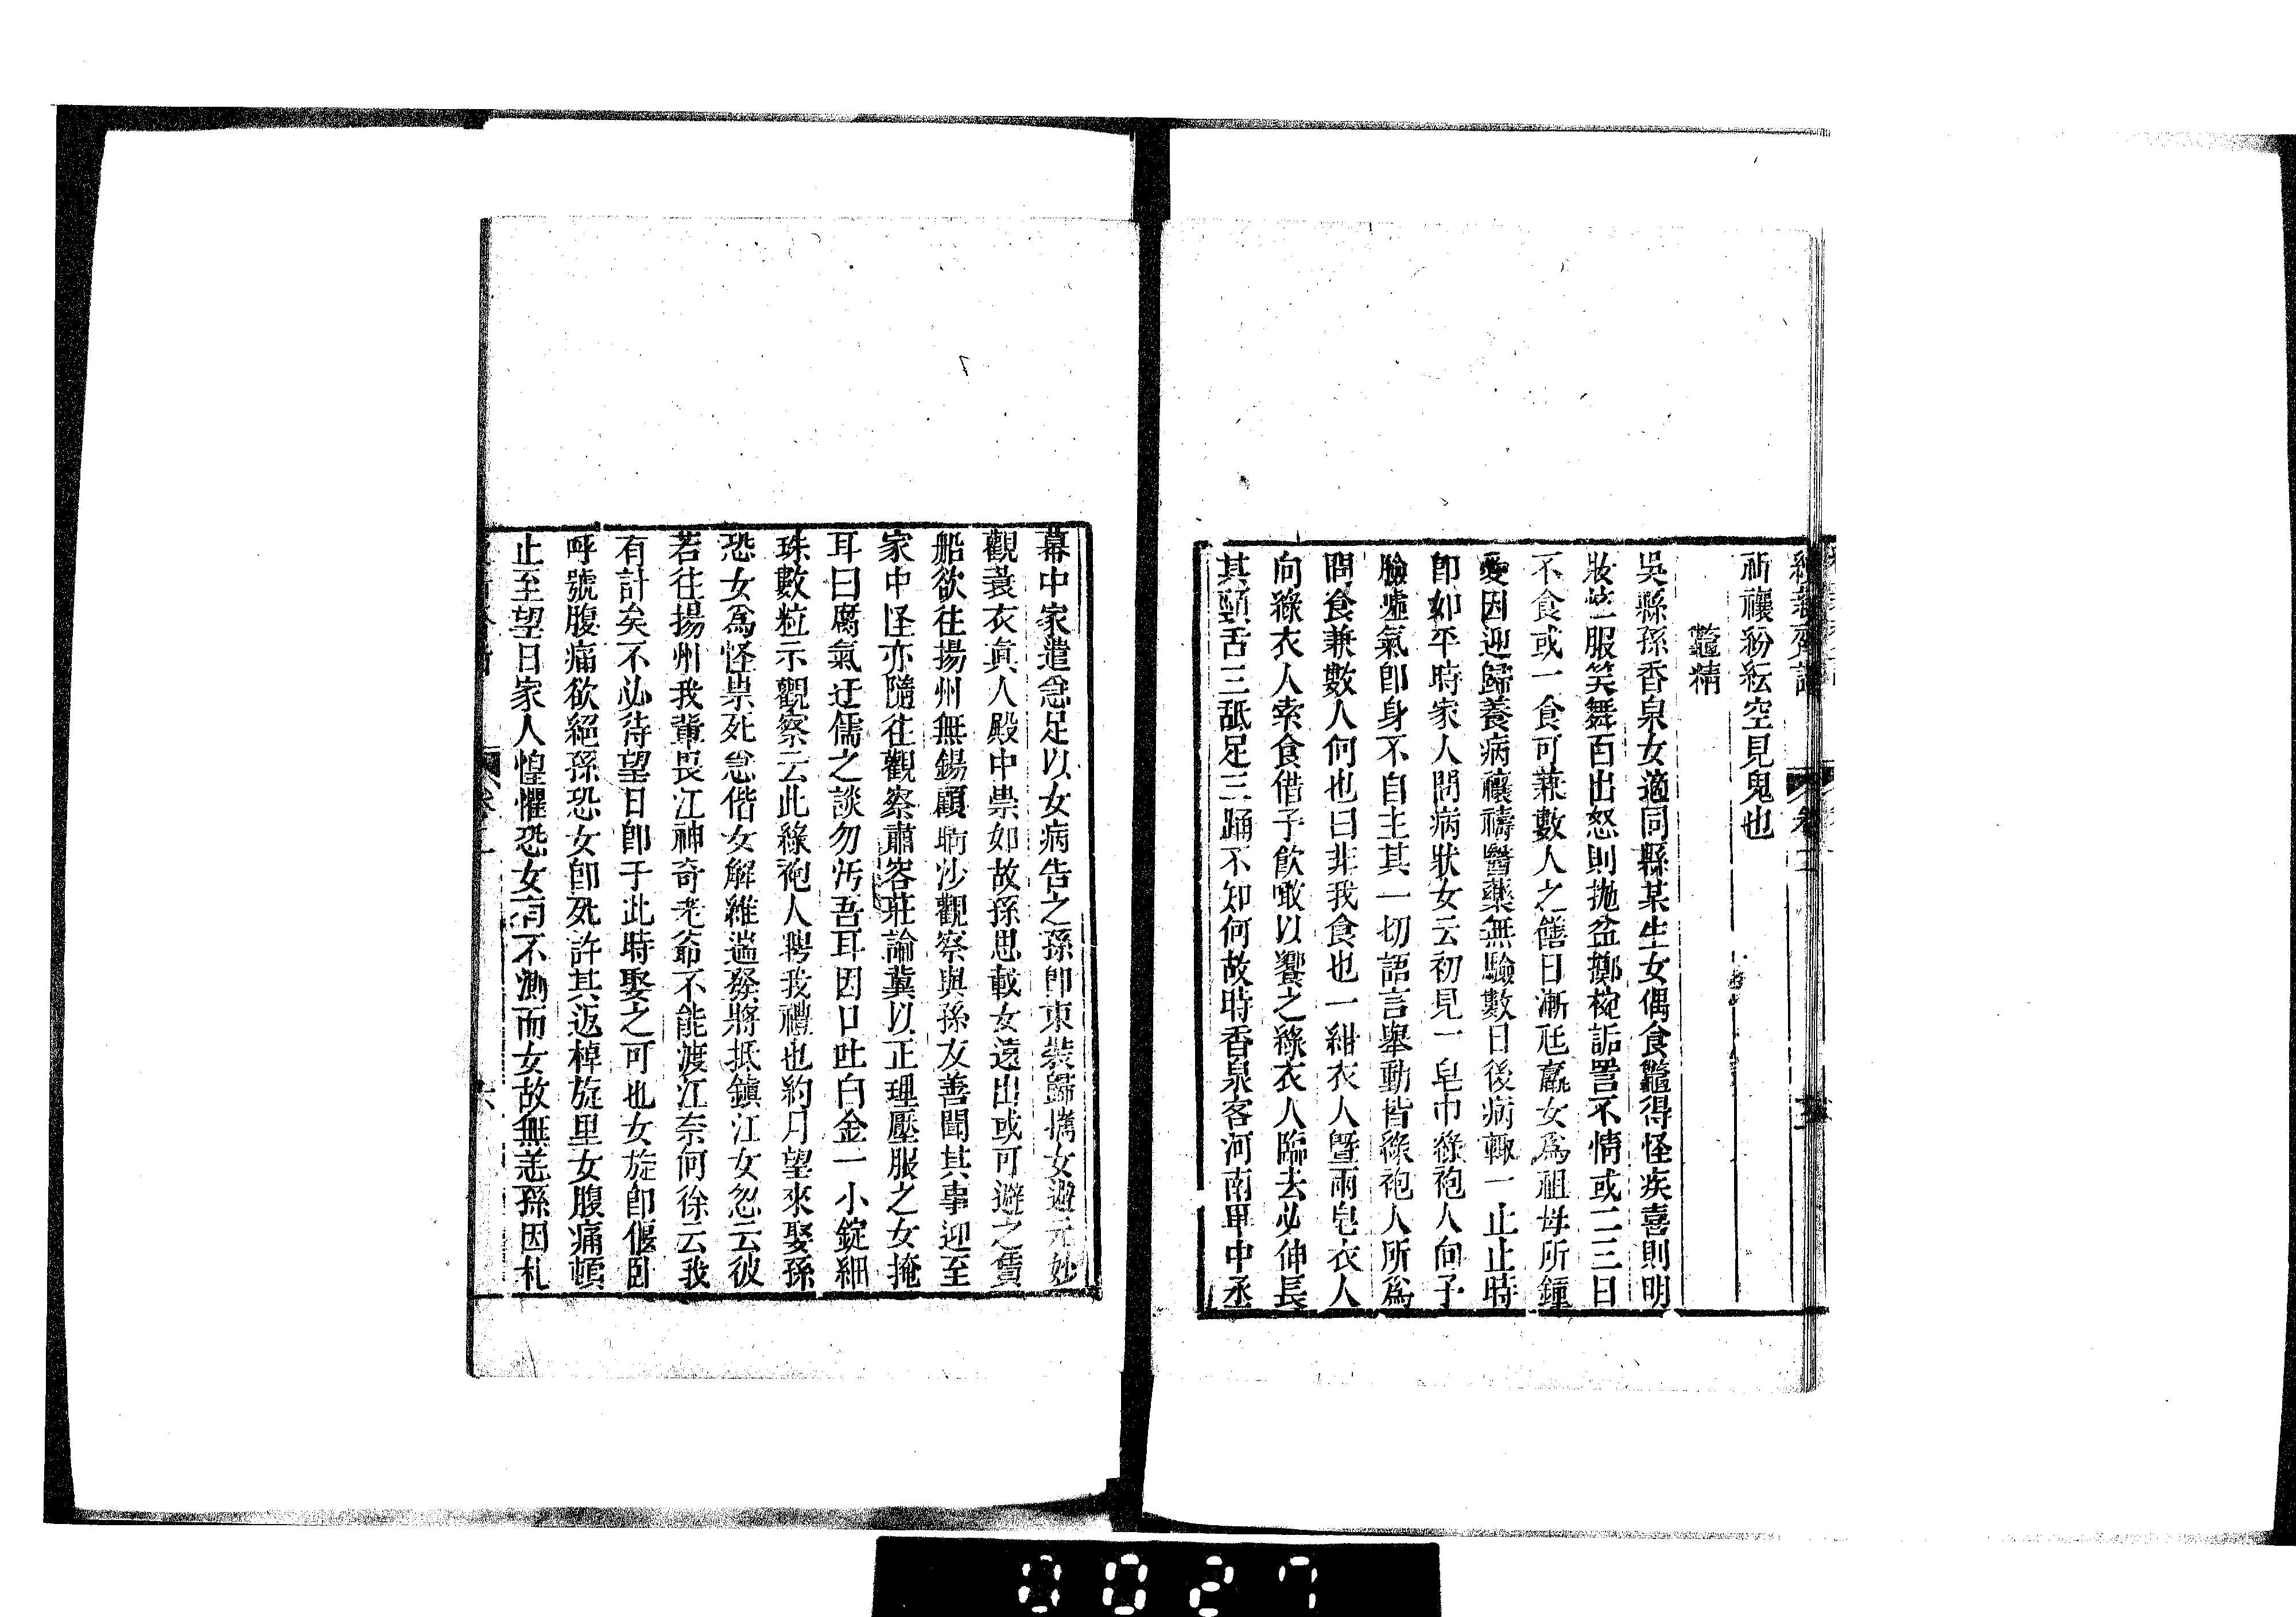 祈禳紛紜空見鬼也
鼈精
吳縣孫香泉女適同縣某生女偶食鼈得怪疾喜則明
妝竺服笑舞百出怒則拋盆擲椀詬詈不情或二三日
不食或一食可兼數人之饍日漸尫羸女爲祖母所鍾
愛因迎歸養病禳禱醫藥無驗數日後病輒一止止時
卽如平時家人問病狀女云初見一皂巾綠袍人向予
臉噓氣卽身不自主其一切語言舉動皆綠袍人所爲
問食兼數人何也曰非我食也一紺衣人曁兩皂衣人
向綠衣人索食借予飲噉以饗之綠衣人臨去必伸長
其頸舌三舐足三踊不知何故時香泉客河南畢中丞
幕中家遣急足以女病告之孫卽束裝歸攜女避元妙
觀蓑衣眞人殿中祟如故孫思載女遠出或可避之賃
船欲往揚州無錫顧晴沙觀察與孫友善聞其事迎至
家中怪亦隨往觀察肅容莊論冀以正理壓服之女掩
耳曰腐氣迂儒之談勿汚吾耳因口吐白金一小錠細
珠數粒示觀察云此綠袍人聘我禮也約月望來娶孫
恐女爲怪祟死急偕女解維遄發將抵鎭江女忽云彼
若往揚州我輩畏江神奇老爺不能渡江奈何徐云我
有計矣不必待望日卽于此時娶之可也女旋卽偃臥
呼號腹痛欲絕孫恐女卽死許其返棹旋里女腹痛頓
止至望日家人惶懼恐女有不測而女故無恙孫因札